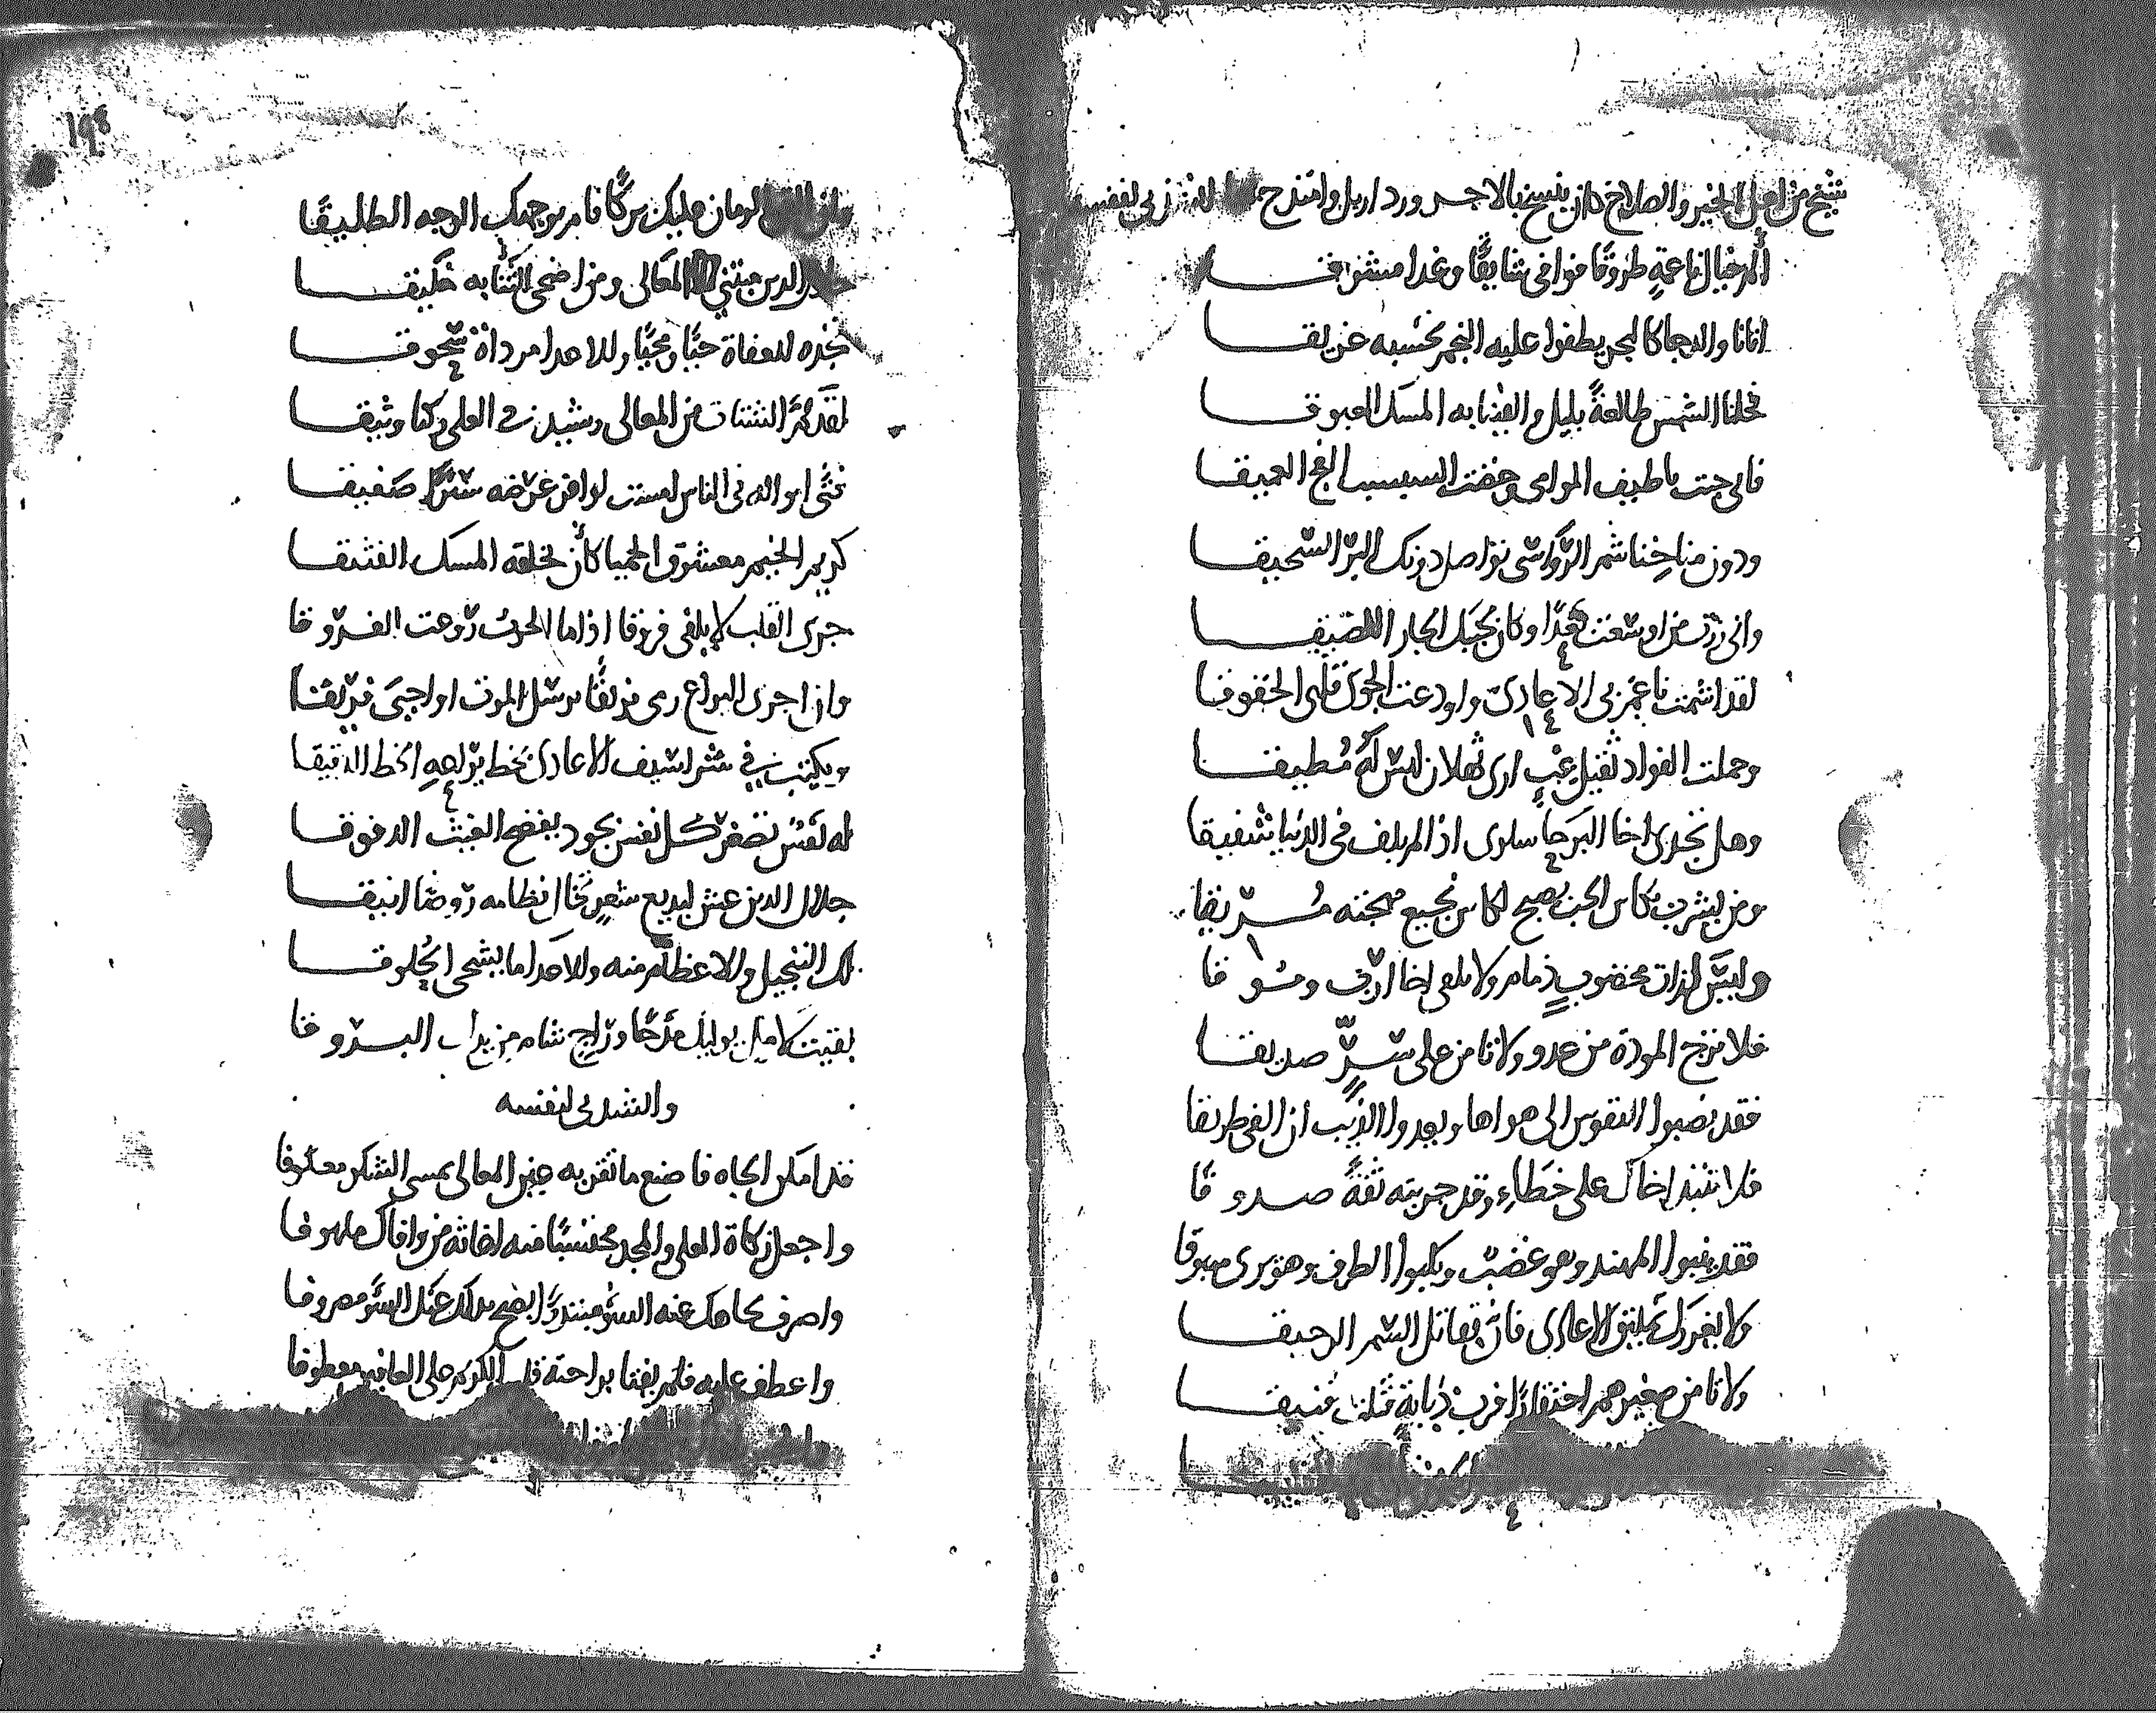 شيخ من اهل الخير والصلاح كان ينسخ بالاجر ورد اربل وامتدح انشدني لنفسه
ألم خيال ناعمةٍ طروقًا فوافى شايقًا وغدا مشوقا
اتانا والدجا كالبحر يطفوا عليه النجم تحسبه غريقا
فخلنا الشمس طالعةً بليل والفينا به المسك العبوقا
فانى جت يا طيف الموامى وخضت السبسب الفج العميقا
ودون مناخنا شم الرواسى تواصل دونك البر السحيقا
وانى زرت من اوسعت بعدًا وكان بجبك الجار اللصيقا
لقد اشمت يا عم بى الاعادى واودعت الجوى قلبى الخفوقا
وحملت الفواد ثقيل عبٍ ارى ثهلان ليس له مُطيقا
وهل تجدى اخا البرحا سلوى اذا لم يلف فى الدنيا شفيقا
ومن يشرب بكاس الحب يصبح لكاس نجيع مهجته مُريقا
وليس لذات مخضوبٍ ذمام ولا يلفى اخا ارق وسوقا
فلا ترج المودة من عدو ولا تامن على سرٍّ صديقا
فقد يصبوا النفوس الى هواها ويعدوا الذيب ان الفى طريقا
فلا تنبذ اخاك على خطاءٍ وقد جربته ثقةً صدوقا
فقد ينبوا المهند وهو عضبٌ ويكبوا الطرف وهو يرى سبوقا
ولا يغررك تمليق الاعادى فان بقاتل السم الرحيقا
ولا تامن صغيرهم احتقارًا فرب ذبابةٍ قتلت فنيقا
الزمان عليك بركًا فامر بوجهك الوجه الطليقا
الدين مبتنى المعالى ومن اضحى الثنا به خليقا
تجده للعفاة حيًا ومحيًا وللاعدا مرداةً سحوقا
لقد لمّ الشتات من المعالى وشيد فى العلى ركنا وثيقا
فتًى امواله فى الناس امست لوافر عرضه سترًا صفيقا
كريم الخيم معشوق المحيا كأن لخلقه المسك الفتيقا
جرى القلب لا يلفى فروقا اذا ما الحرب روعت الفروقا
وان اجرى اليراع رى فريقًا برسل الموت او احيى فريقا
ويكتب فى بشر السيف الاعادى بخط يراعه الخط الدقيقا
له نفسٌ تصغر كل نفس بجود يفضح الغيث الدفوقا
جلال الدين عش لبديع شعرٍ تخال نظامه روضًا انيقا
لك التبجيل والاعظام منه وللاعدا ما يشجى الحلوقا
بقيت لامل يوليك مدحًا وراج شام من يداك البروقا
وانشدنى لنفسه
قد امكن الجاه فاصنع ما تقر به عين المعالى يمسى الشكر معكوفا
واجعل زكاة العلى والمجد محتسبًا منه اغاثة من وافاك ملهوفا
واصرف بجاهك عنه السوء مبتدرًا يضح بذاك عنك السوء مصروفا
واعطف عليه فلم يفتا براحته قلب الكريم على العافين معطوفا